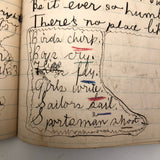 Be it ever so hum
There's no place li
Birds chirp.
Boys cry.
fly.
Girls
Sailors sail.
Sportsman shoot.